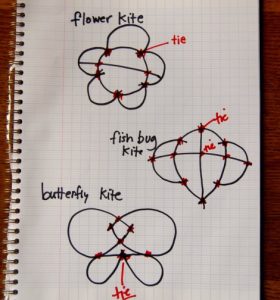 flower kite
tie
fish bug
kite
tie
tie
butterfly kite
tie